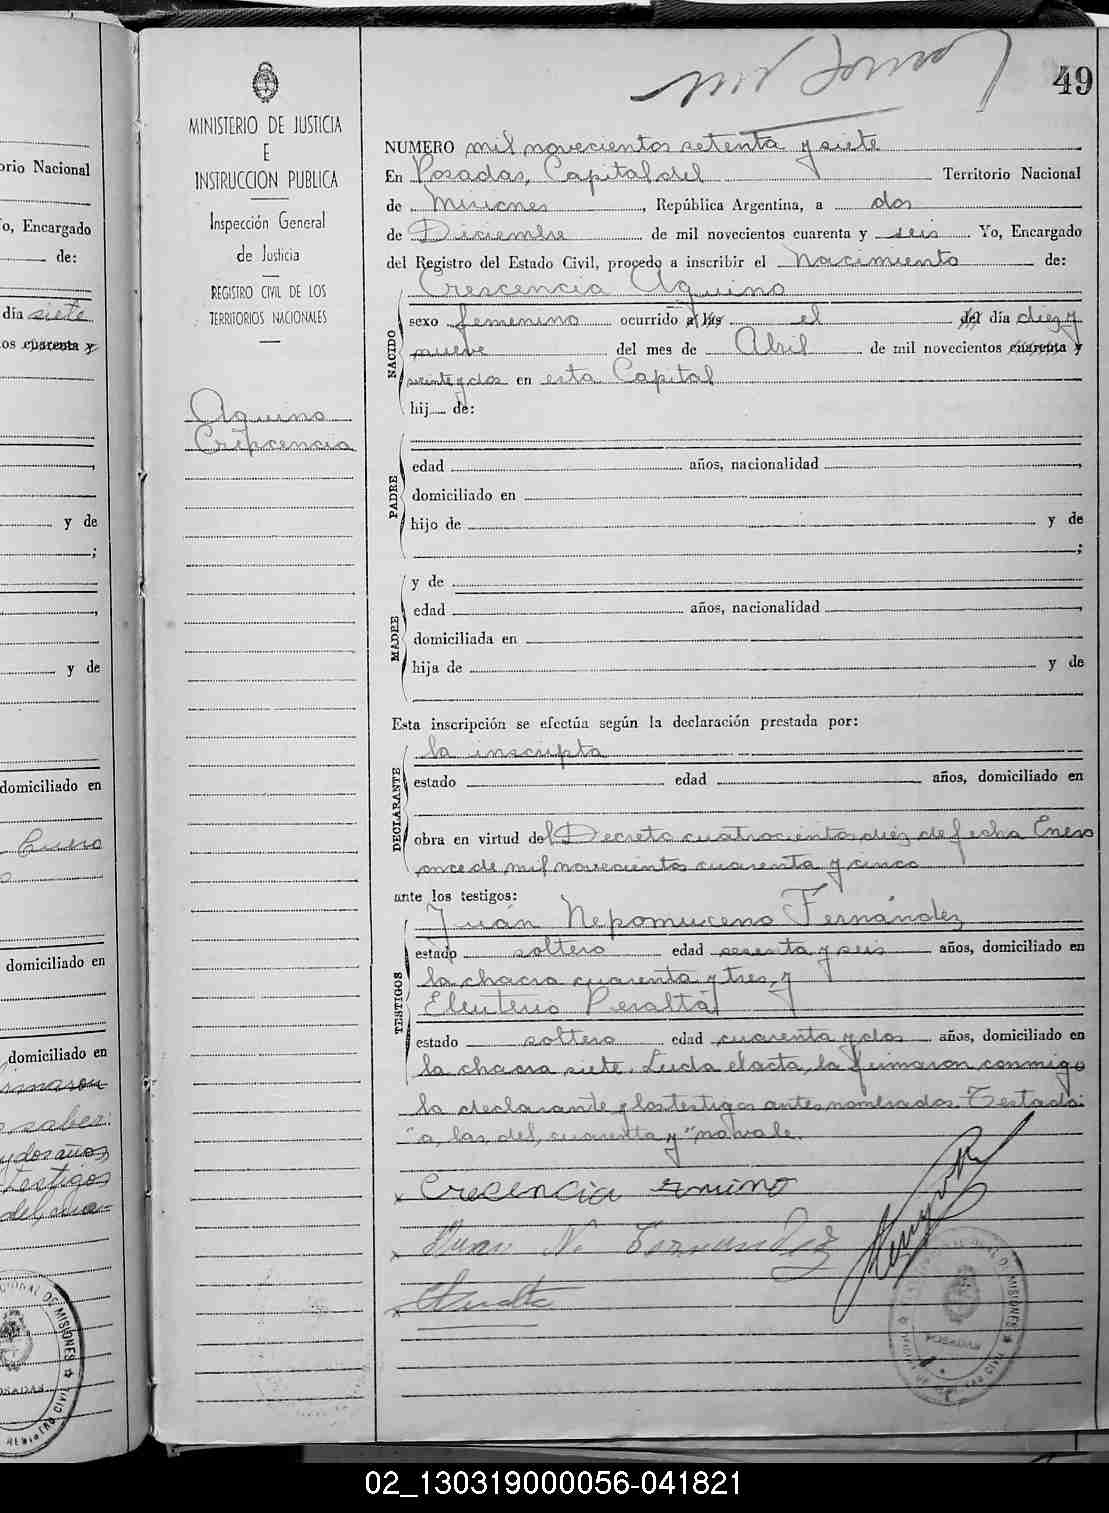 49
MINISTERIO DE JUSTICIA
E
INSTRUCCION PUBLICA
Inspección General
de Justicia
REGISTRO CIVIL DE LOS
TERRITORIOS NACIONALES
Aquino
Crescencia
NUMERO mil novecientos setenta y siete
En Posadas, Capital del Territorio Nacional
de Misiones, República Argentina, a dos
de Diciembre de mil novecientos cuarenta y seis Yo, Encargado
del Registro del Estado Civil, procedo a inscribir el Nacimiento de:
Crescencia Aquino
NACIDO
sexo femenino ocurrido a las el del día diez y
nueve del mes de Abril de mil novecientos cuarenta y
veinte y dos en esta Capital
hij de:
PADRE
edad años, nacionalidad ,
domiciliado en
hijo de y de
;
MADRE
y de
edad años, nacionalidad ,
domiciliada en
hija de y de
Esta inscripción se efectúa según la declaración prestada por:
DECLARANTE
la inscripta
estado edad años, domiciliado en
obra en virtud del Decreto cuatrocientos diez de fecha Enero
once de mil novecientos cuarenta y cinco
ante los testigos:
TESTIGOS
Juán Nepomuceno Fernández
estado soltero edad sesenta y seis años, domiciliado en
la chacra cuarenta y tres, y
Eleuterio Peralta
estado soltero edad cuarenta y dos años, domiciliado en
la chacra siete. Leída el acta, la firmaron conmigo
la declarante y los testigos antes nombrados. Testado:
"a, las, del, cuarenta y" no vale.
x Cresencia
x Juan N. Fernandez
POSADAS
orio Nacional
o, Encargado
de:
día siete
os cuarenta y
y de
;
,
y de
domiciliado en
domiciliado en
domiciliado en
firmaron
saber:
y dos años
testigos
POSADAS
02_130319000056-041821